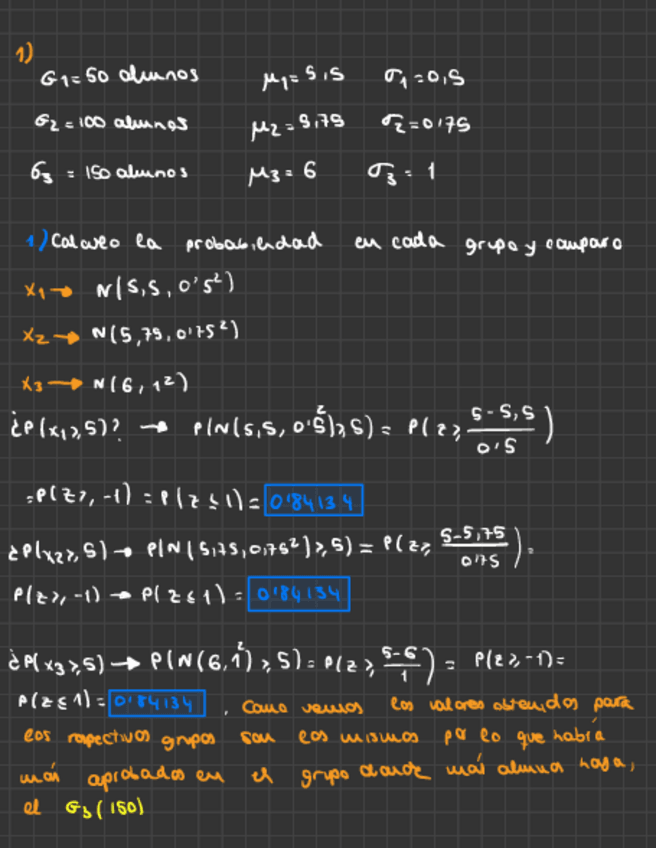 1)
G1 = 50 alumnos μ1 = 5,5 σ1 = 0,5
G2 = 100 alumnos μ2 = 5,75 σ2 = 0,75
G3 = 150 alumnos μ3 = 6 σ3 = 1
1) Calculo la probabilidad en cada grupo y comparo
x1 → N(5,5, 0'5²)
x2 → N(5,75, 0,75²)
x3 → N(6, 1²)
¿P(x1≥5)? → P(N(5,5, 0'5²)≥5) = P(z≥ (5-5,5)/0'5)
=P(z≥,-1) = P(z≤1) = 0'84134
¿P(x2≥,5) → P(N(5,75,0,75²)≥,5) = P(z≥ (5-5,75)/0'75) =
P(z≥,-1) → P(z≤1) = 0'84134
¿P(x3≥5) → P(N(6,1²)≥,5) = P(z≥ (5-6)/1) = P(z≥,-1)=
P(z≤1) = 0'84134 , Como vemos los valores obtenidos para
los respectivos grupos son los mismos por lo que habría
más aprobados en el grupo donde más alumnos haya,
el G3 (150)